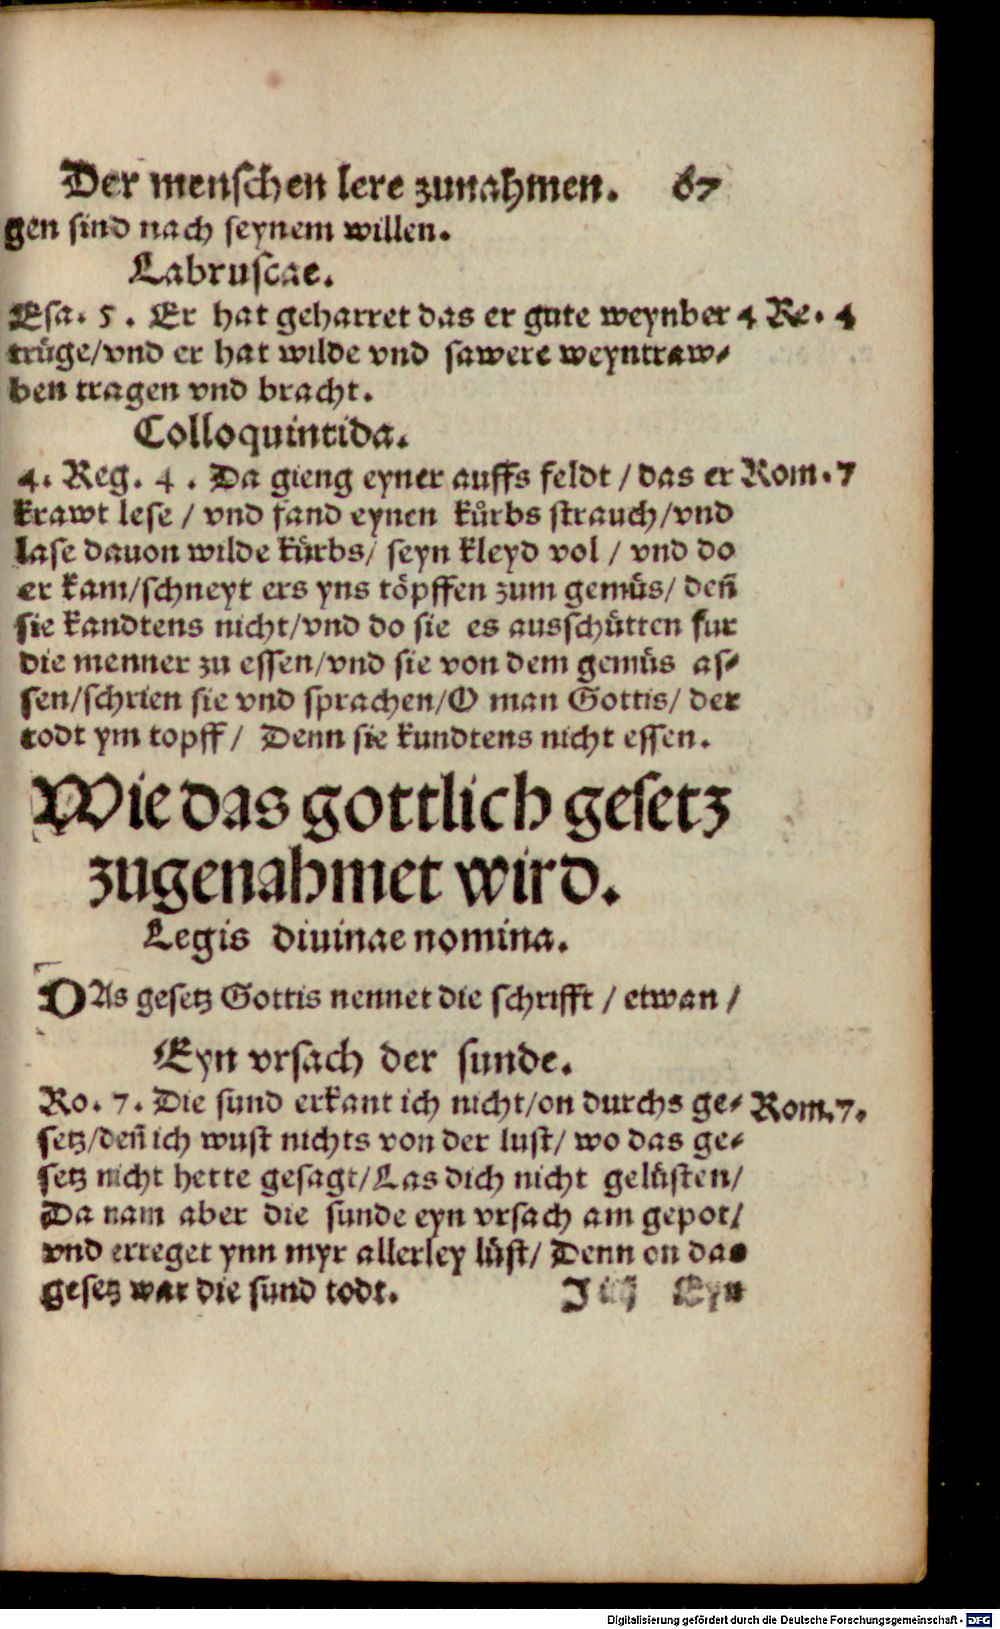 Der menschen lere zunahmen. 67
gen sind nach seynem willen.
Labruscae.
Esa. 5. Er hat geharret das er gute weynber 4 Re. 4
trůge/vnd er hat wilde vnd sawere weyntraw⸗
ben tragen vnd bracht.
Colloquintida.
4. Reg. 4. Da gieng eyner auffs feldt / das er Rom. 7
krawt lese / vnd fand eynen kůrbs strauch/vnd
lase dauon wilde kůrbs/ seyn kleyd vol / vnd do
er kam/schneyt ers yns töpffen zum gemůs/ deñ
sie kandtens nicht/vnd do sie es ausschůtten fur
die menner zu essen/vnd sie von dem gemůs as⸗
sen/schrien sie vnd sprachen/O man Gottis/ der
todt ym topff/ Denn sie kundtens nicht essen.
Wie das gottlich gesetz
zugenahmet wird.
Legis diuinae nomina.
DAs gesetz Gottis nennet die schrifft / etwan /
Eyn vrsach der sunde.
Ro. 7. Die sund erkant ich nicht/on durchs ge⸗ Rom. 7.
setz/deñ ich wust nichts von der lust/ wo das ge⸗
setz nicht hette gesagt/Las dich nicht gelůsten/
Da nam aber die sunde eyn vrsach am gepot/
vnd erreget ynn myr allerley lůst/ Denn on das
gesetz war die sund todt. I iij Eyn
Digitalisierung gefördert durch die Deutsche Forschungsgemeinschaft - DFG